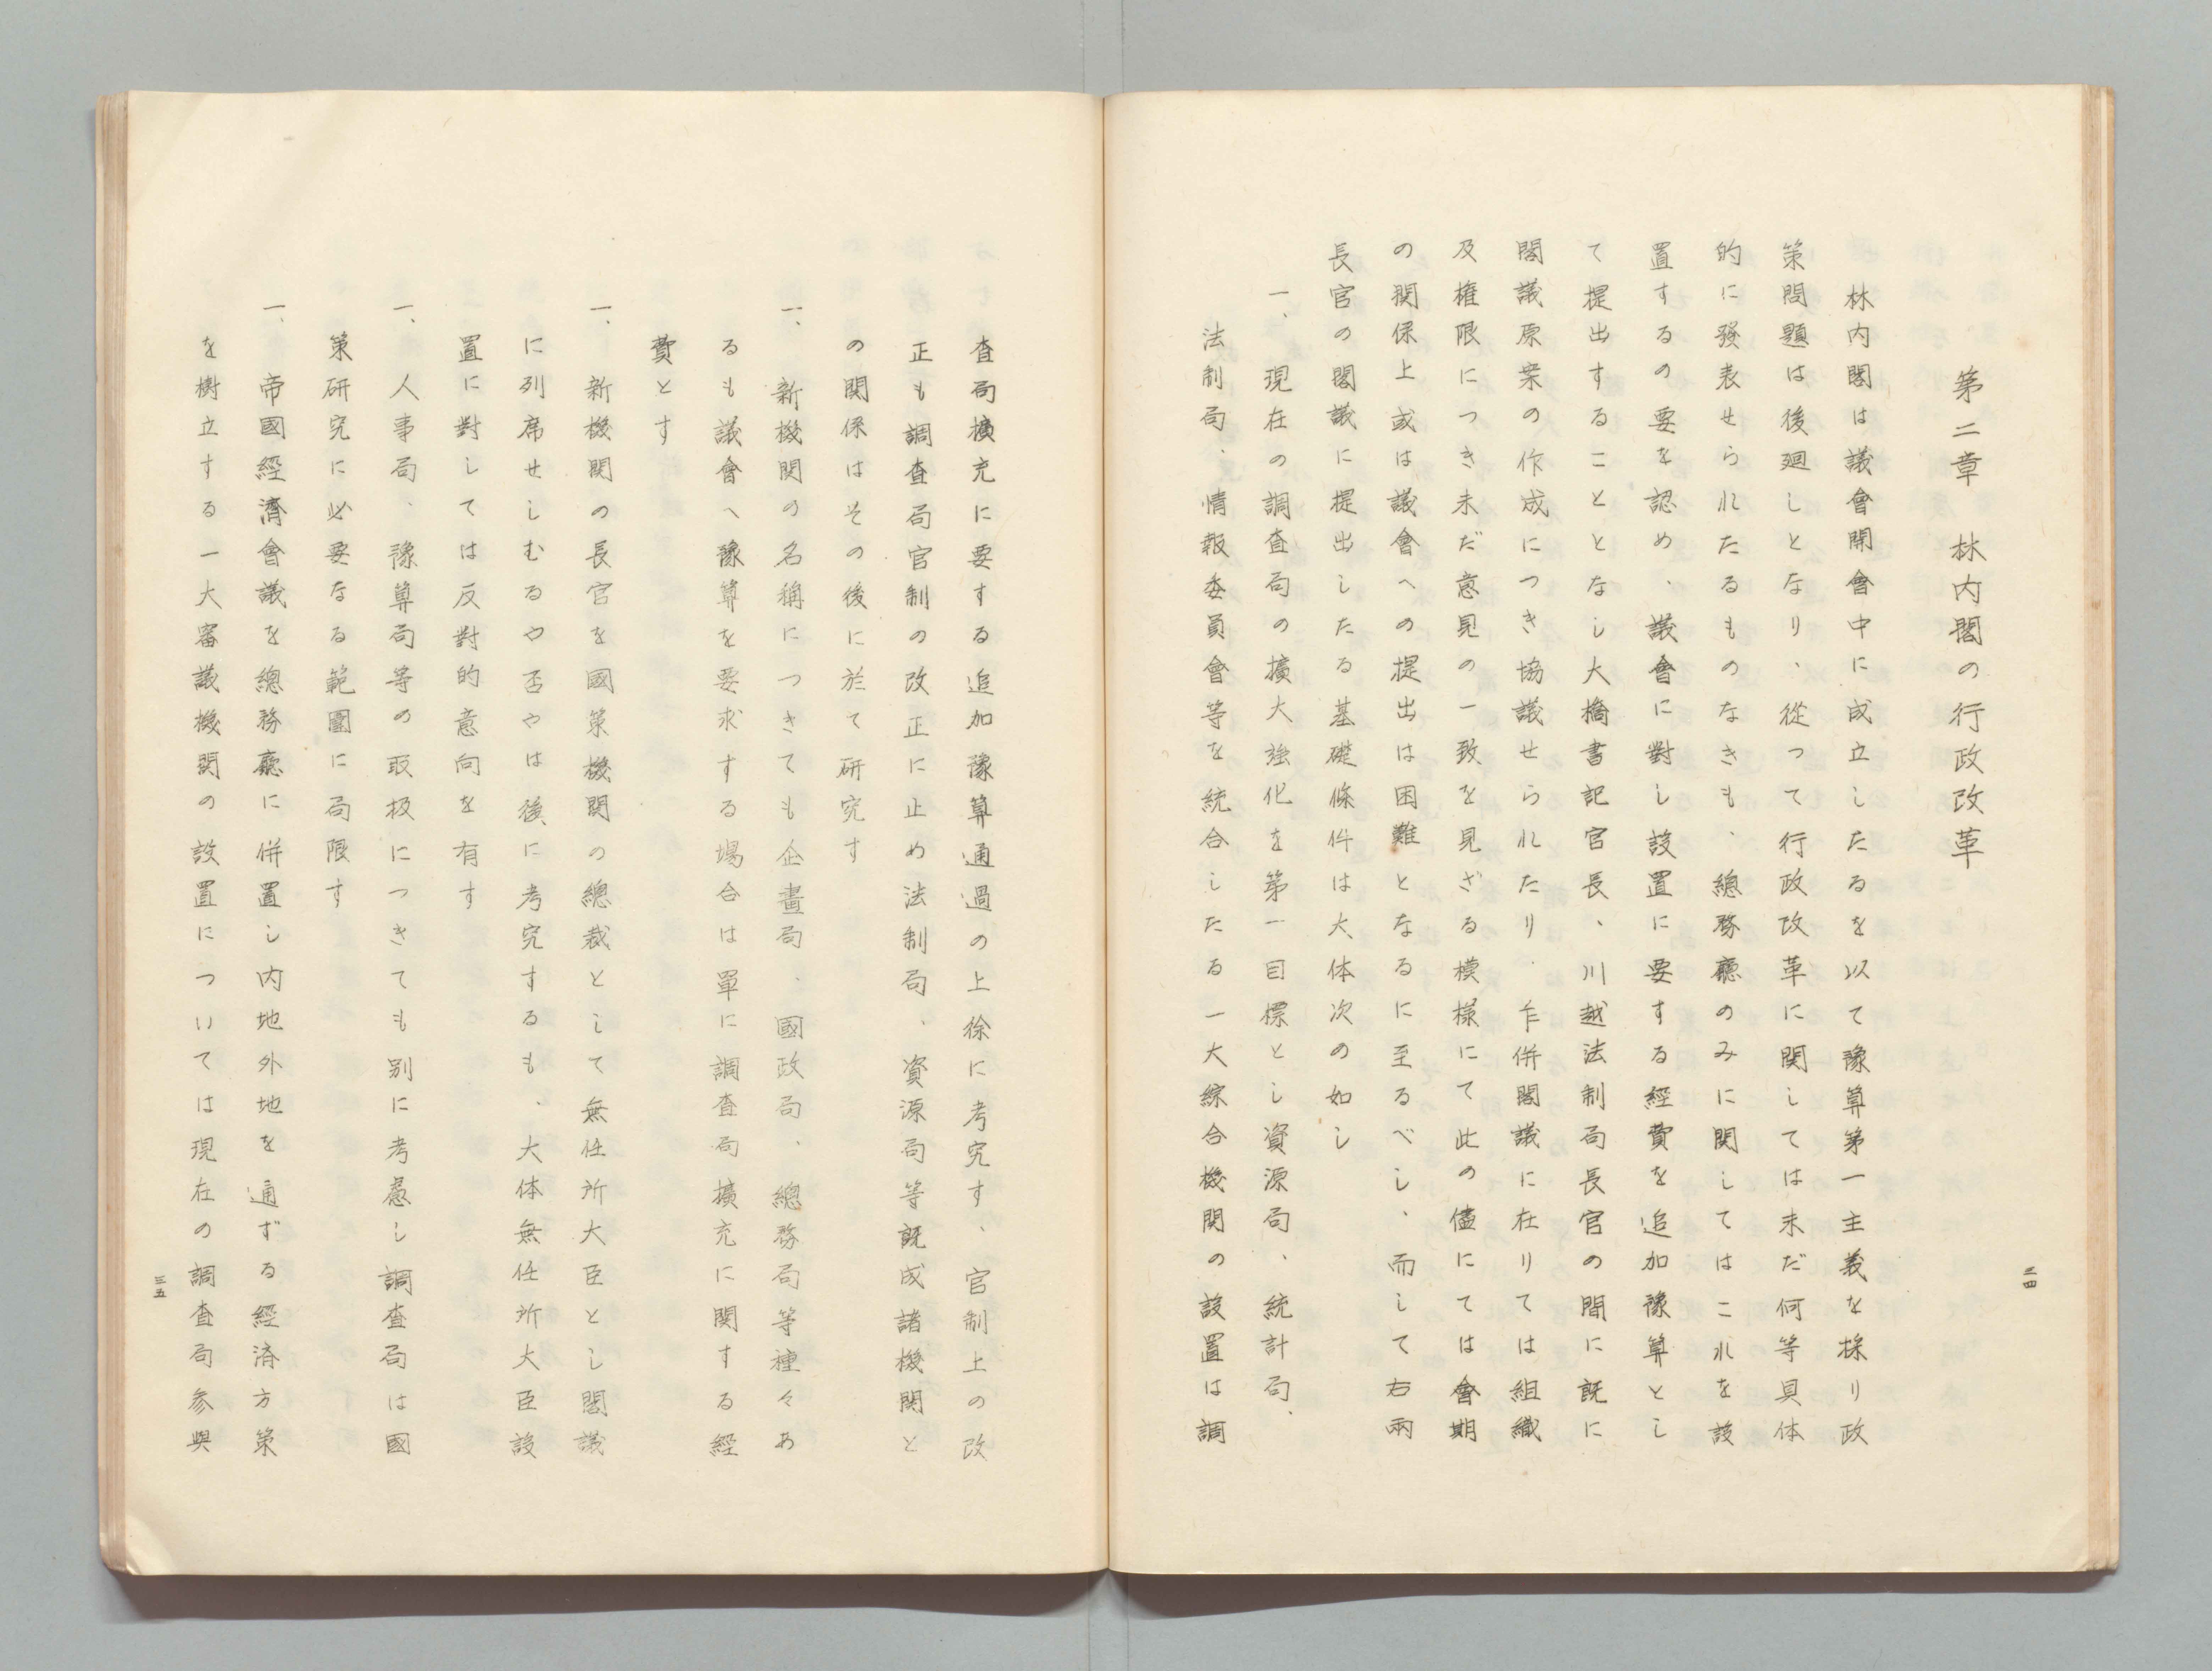 第二章　林内閣の行政改革
林内閣は議會開會中に成立したるを以て豫算第一主義を採り政
策問題は後廻しとなり、從つて行政改革に関しては未だ何等具体
的に發表せられたるものなきも、總務廳のみに関してはこれを設
置するの要を認め、議會に對し設置に要する経費を追加豫算とし
て提出することとなし大橋書記官長、川越法制局長官の間に既に
閣議原案の作成につき協議せられたり、乍併閣議に在りては組織
及権限につき未だ意見の一致を見ざる模様にて此の儘にては會期
の関係上或は議會への提出は困難となるに至るべし、而して右兩
長官の閣議に提出したる基礎條件は大体次の如し
一、現在の調査局の擴大強化を第一目標とし資源局、統計局、
法制局、情報委員會等を統合したる一大綜合機関の設置は調
二四
査局擴充に要する追加豫算通過の上徐に考究す、官制上の改
正も調査局官制の改正に止め法制局、資源局等既成諸機関と
の関係はその後に於て研究す
一、新機関の名稱につきても企畫局、國政局、總務局等種々あ
るも議會へ豫算を要求する場合は單に調査局擴充に関する經
費とす
一、新機関の長官を國策機関の總裁として無任所大臣とし閣議
に列席せしむるや否やは後に考究するも、大体無任所大臣設
置に對しては反對的意向を有す
一、人事局、豫算局等の取扱につきても別に考慮し調査局は國
策研究に必要なる範圍に局限す
一、帝國經濟會議を總務廳に併置し内地外地を通ずる経済方策
を樹立する一大審議機関の設置については現在の調査局参與
三五